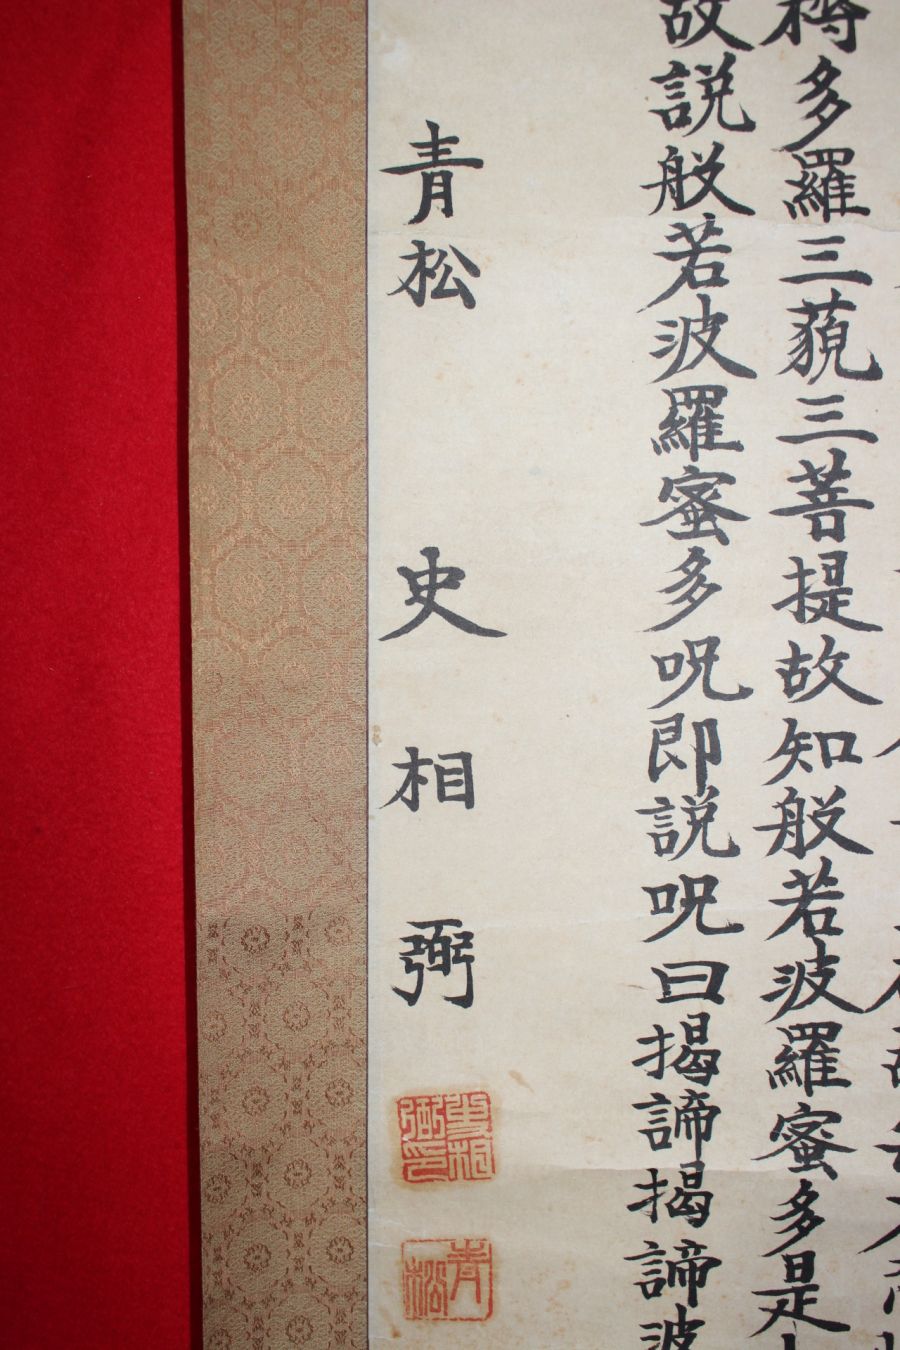 耨多羅三藐三菩提故知般若波羅蜜多是
故説般若波羅蜜多呪即説呪曰掲諦掲諦波
青松 史相弼
史相弼印
青松